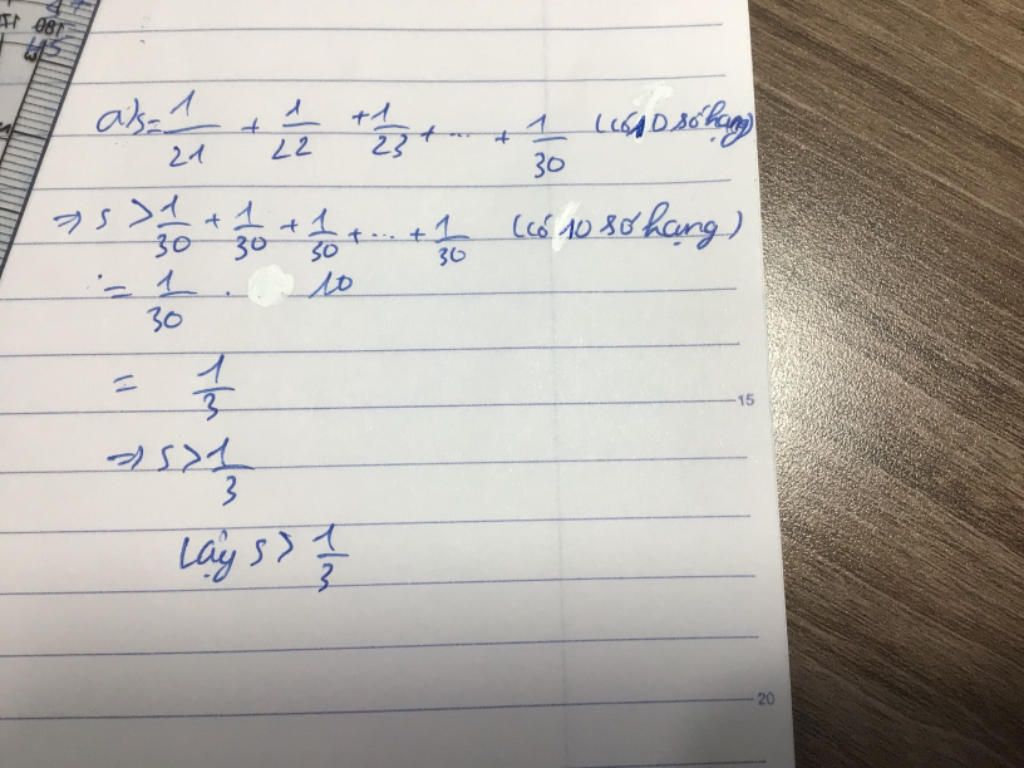 a) S = 1/21 + 1/22 + 1/23 + ... + 1/30 (có 10 số hạng)
⇒ S > 1/30 + 1/30 + 1/30 + ... + 1/30 (có 10 số hạng)
= 1/30 . 10
= 1/3
⇒ S > 1/3
Vậy S > 1/3
15
20